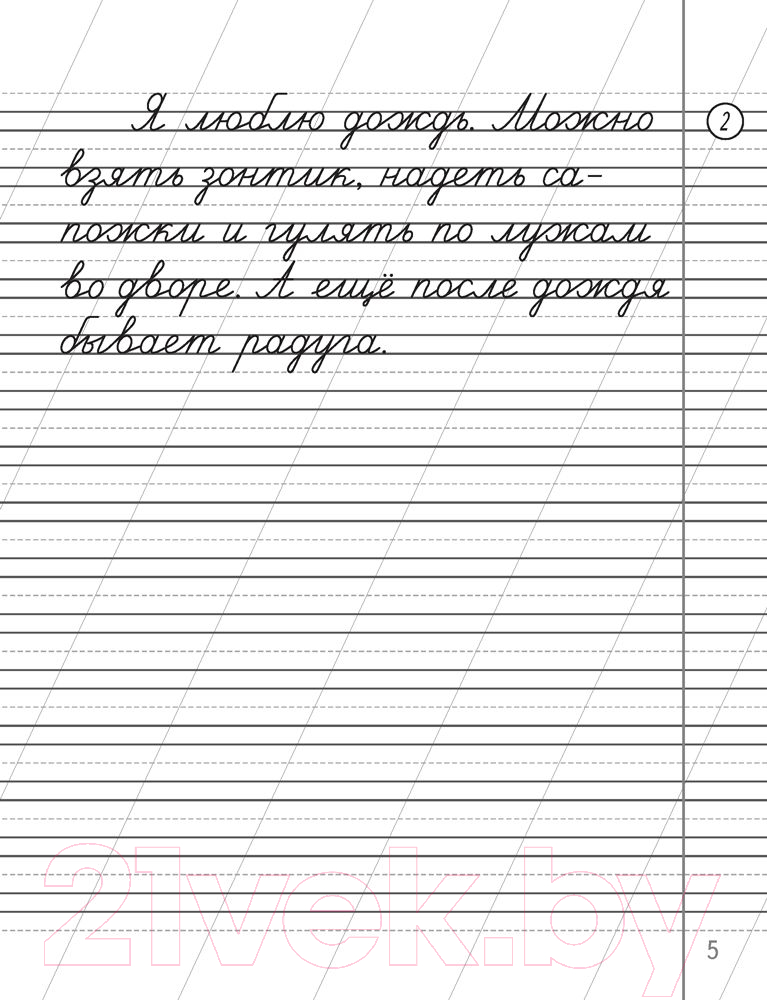 Я люблю дождь. Можно
2
взять зонтик, надеть са-
пожки и гулять по лужам
во дворе. А ещё после дождя
бывает радуга.
21vek.by
5